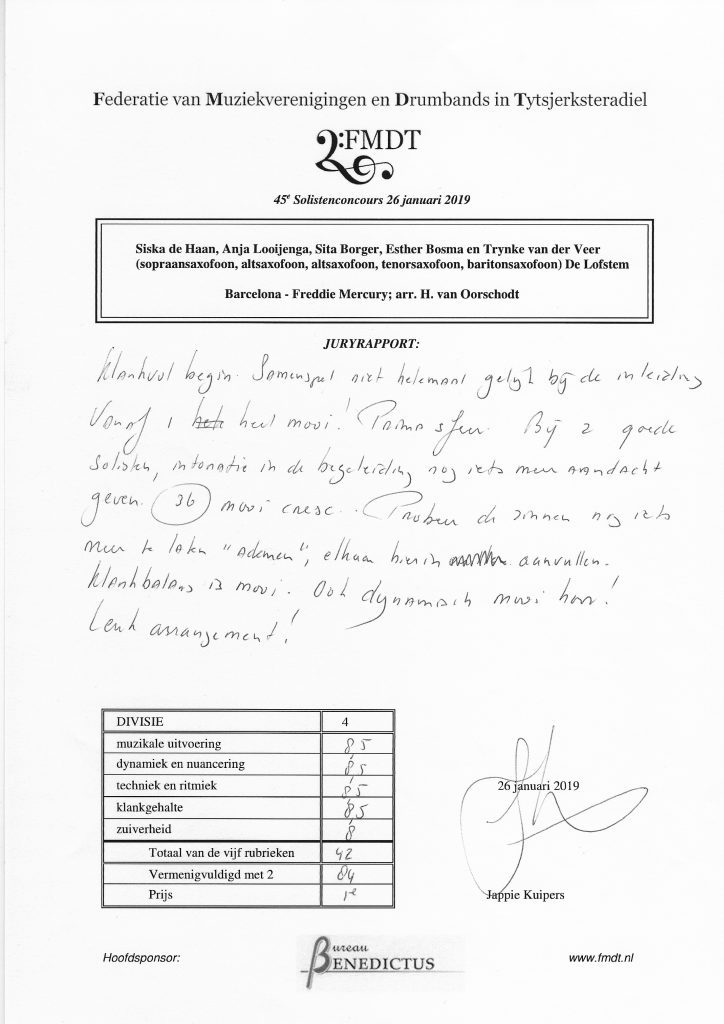 Federatie van Muziekverenigingen en Drumbands in Tytsjerksteradiel
FMDT
45e Solistenconcours 26 januari 2019
Siska de Haan, Anja Looijenga, Sita Borger, Esther Bosma en Trynke van der Veer
(sopraansaxofoon, altsaxofoon, altsaxofoon, tenorsaxofoon, baritonsaxofoon) De Lofstem
Barcelona - Freddie Mercury; arr. H. van Oorschodt
JURYRAPPORT:
Klankvol begin. Samenspel niet helemaal gelijk bij de inleiding
Vanaf 1 heel mooi! Prima sfeer. Bij 2 goede
solisten, intonatie in de begeleiding nog iets meer aandacht
geven. 36 mooi cresc.. Probeer de zinnen nog iets
meer te laten "ademen", elkaar hierin aanvullen.
Klankbalans is mooi. Ook dynamisch mooi hoor!
Leuk arrangement!
DIVISIE 4
muzikale uitvoering 85
dynamiek en nuancering 85
techniek en ritmiek 85
klankgehalte 85
zuiverheid 8
Totaal van de vijf rubrieken 42
Vermenigvuldigd met 2 84
Prijs 1e
26 januari 2019
Jappie Kuipers
Hoofdsponsor:
Bureau
BENEDICTUS
www.fmdt.nl